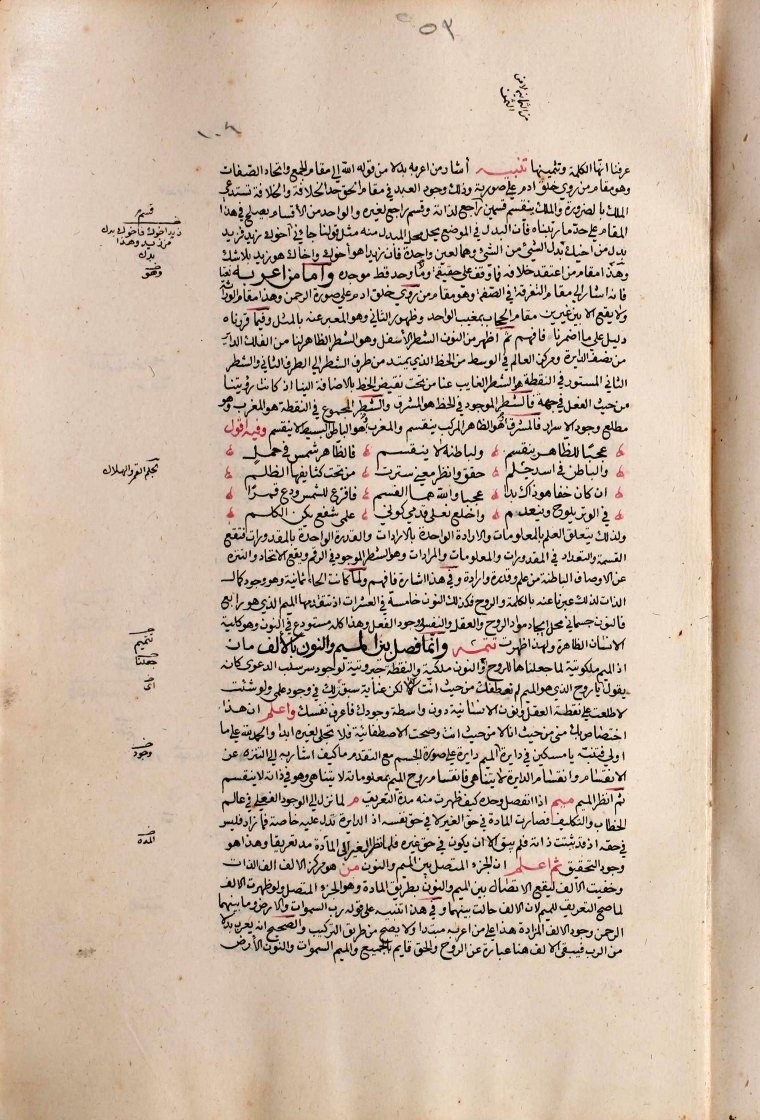 ٥٣
١٠٦
عرفنا انها الكلمة وتثمينها تنبيه أشار من اعربه بدلا من قوله الله إلى مقام الجمع واتحاد الصفات
وهو مقام من روى خلق ادم على صورته وذلك وجود العبد في مقام الحق حد الخلافة والخلافة تستدعى
الملك بالضرورة والملك ينقسم قسمين قسم راجع لذاته وقسم راجع لغيره والواحد من الأقسام يصلح في هذا
المقام على حد ما رتبناه فان البدل في الموضع يحل محل المبدل منه مثل قولنا جاءني أخوك زيد فزيد
بدل من اخيك بدل الشئ من الشئ وهما لعين واحدة فان زيدا هو أخوك وأخاك هو زيد بلا شك
وهذا مقام من اعتقد خلافه فما وقف على حقيقة وما وحد قط موجده واما من اعربه نعتا
فانه اشار إلى مقام التفرقة في الصفة وهو مقام من روى خلق ادم على صورة الرحمن وهذا مقام الوراثة
ولا يقع الا بين غيرين مقام الحجاب بمغيب الواحد وظهور الثاني وهو المعبر عنه بالمثل وفيما قررناه
دليل على ما اضمرناه فافهم ثم اظهر من النون الشطر الأسفل وهو الشطر الظاهر لنا من الفلك الداير
من نصف الدايرة ومركز العالم في الوسط من الخط الذي يمتد من طرف الشطر إلى الطرف الثاني والشطر
الثاني المستور في النقطة هو الشطر الغايب عنا من تحت نقيض الخط بالاضافة الينا اذ كانت رؤيتنا
من حيث الفعل في جهة فالشطر الموجود في الخط هو المشرق والشطر المجموع في النقطة هو المغرب وهو
مطلع وجود الاسرار فالمشرق هو الظاهر المركب ينقسم والمغرب هو الباطن البسيط لا ينقسم وفيه اقول
عجبا للظاهر ينقسم ولباطنه لا ينقسم فالظاهر شمس في حمل
والباطن في اسد حلم حقق وانظر معنى سترت من تحت كثايفها الظلم
ان كان خفا هو ذاك بدا عجبا والله هما القسم فافزع للشمس ودع قمرا
في الوتر يلوح وينعدم واخلع نعلى قدمي كوني علمي شفع يكن الكلم
ولذلك يتعلق العلم بالمعلومات والارادة الواحدة بالارادات والقدرة الواحدة بالمقدورات فتقع
القسمة والتعداد في المقدورات والمعلومات والمرادات وهو الشطر الموجود في الرقم ويقع الاتحاد والتنزه
عن الاوصاف الباطنة من علم وقدرة وارادة وفي هذا اشارة فافهم ولما كانت الحاء ثمانية وهو وجود كمال
الذات لذلك عبرنا عنه بالكلمة والروح فكذلك النون خامسة في العشرات اذ يتقدمها الميم الذي هو رابع
فالنون جسماني محل ايجاد مواد الروح والعقل والنفس ووجود الفعل وهذا كله مستودع في النون وهو كلية
الانسان الظاهرة ولهذا ظهرت تتمة وانما فصل بين الميم والنون بالالف مان
اذ الميم ملكوتية لما جعلناها للروح والنون ملكية والنقطة جبروتية لوجود سر سلب الدعوى كانه
يقول يا روح الذي هو الميم لم نصطفك من حيث انت لكن عناية سبقت لك في وجود علمي ولو شئت
لاطلعت على نقطة العقل ونون الانسانية دون واسطة وجودك فاعرف نفسك واعلم ان هذا
اختصاص بك مني من حيث انا لا من حيث انت وصحت الاصطفائية فلا تجلى لغيره ابدا والحمد لله على ما
اولى فتنبه يا مسكين في دايرة الميم دايرة على صورة الجسم مع التقدم ما كيف اشار به إلى التنزه عن
الانقسام وانقسام الدايرة لا يتناهى فانقسام روح الميم بمعلوماته لا يتناهى وهو في ذاته لا ينقسم
ثم انظر الميم ميم اذا انفصل وحده كيف ظهرت منه مدة التعريف م لما نزل إلى الوجود الفعلي في عالم
الخطاب والتكليف فصارت المادة في حق الغير لا في حق نفسه اذ الدايرة تدل عليه خاصة فما زاد فليس
في حقه اذ قد ثبتت ذاته فلم يبق الا ان يكون في حق غيره فلما نظر الغير إلى المادة مد تعريفا وهذا هو
وجود التحقيق ثم اعلم ان الجزء المتصل بين الميم والنون من هو مركز الالف الف الذات
وخفيت الالف ليقع الاتصال بين الميم والنون بطريق المادة وهو الجزء المتصل ولو ظهرت الالف
لما صح التعريف للميم لان الالف حالت بينهما وفي هذا تنبيه على قوله رب السموات والارض وما بينهما
الرحمن وجود الالف المرادة هذا على من اعربه مبتدا ولا يصح من طريق التركيب والصحيح انه يعرب بدلا
من الرب فيبقى الالف هنا عبارة عن الروح والحق قايم بالجميع والميم السموات والنون الأرض
قسم
زيد اخوك فأخوك بدل
من زيد وهذا
بدل
وحقق
تجلم القمر والهلال
تتميم
جعلنا
اى
وجود
المده